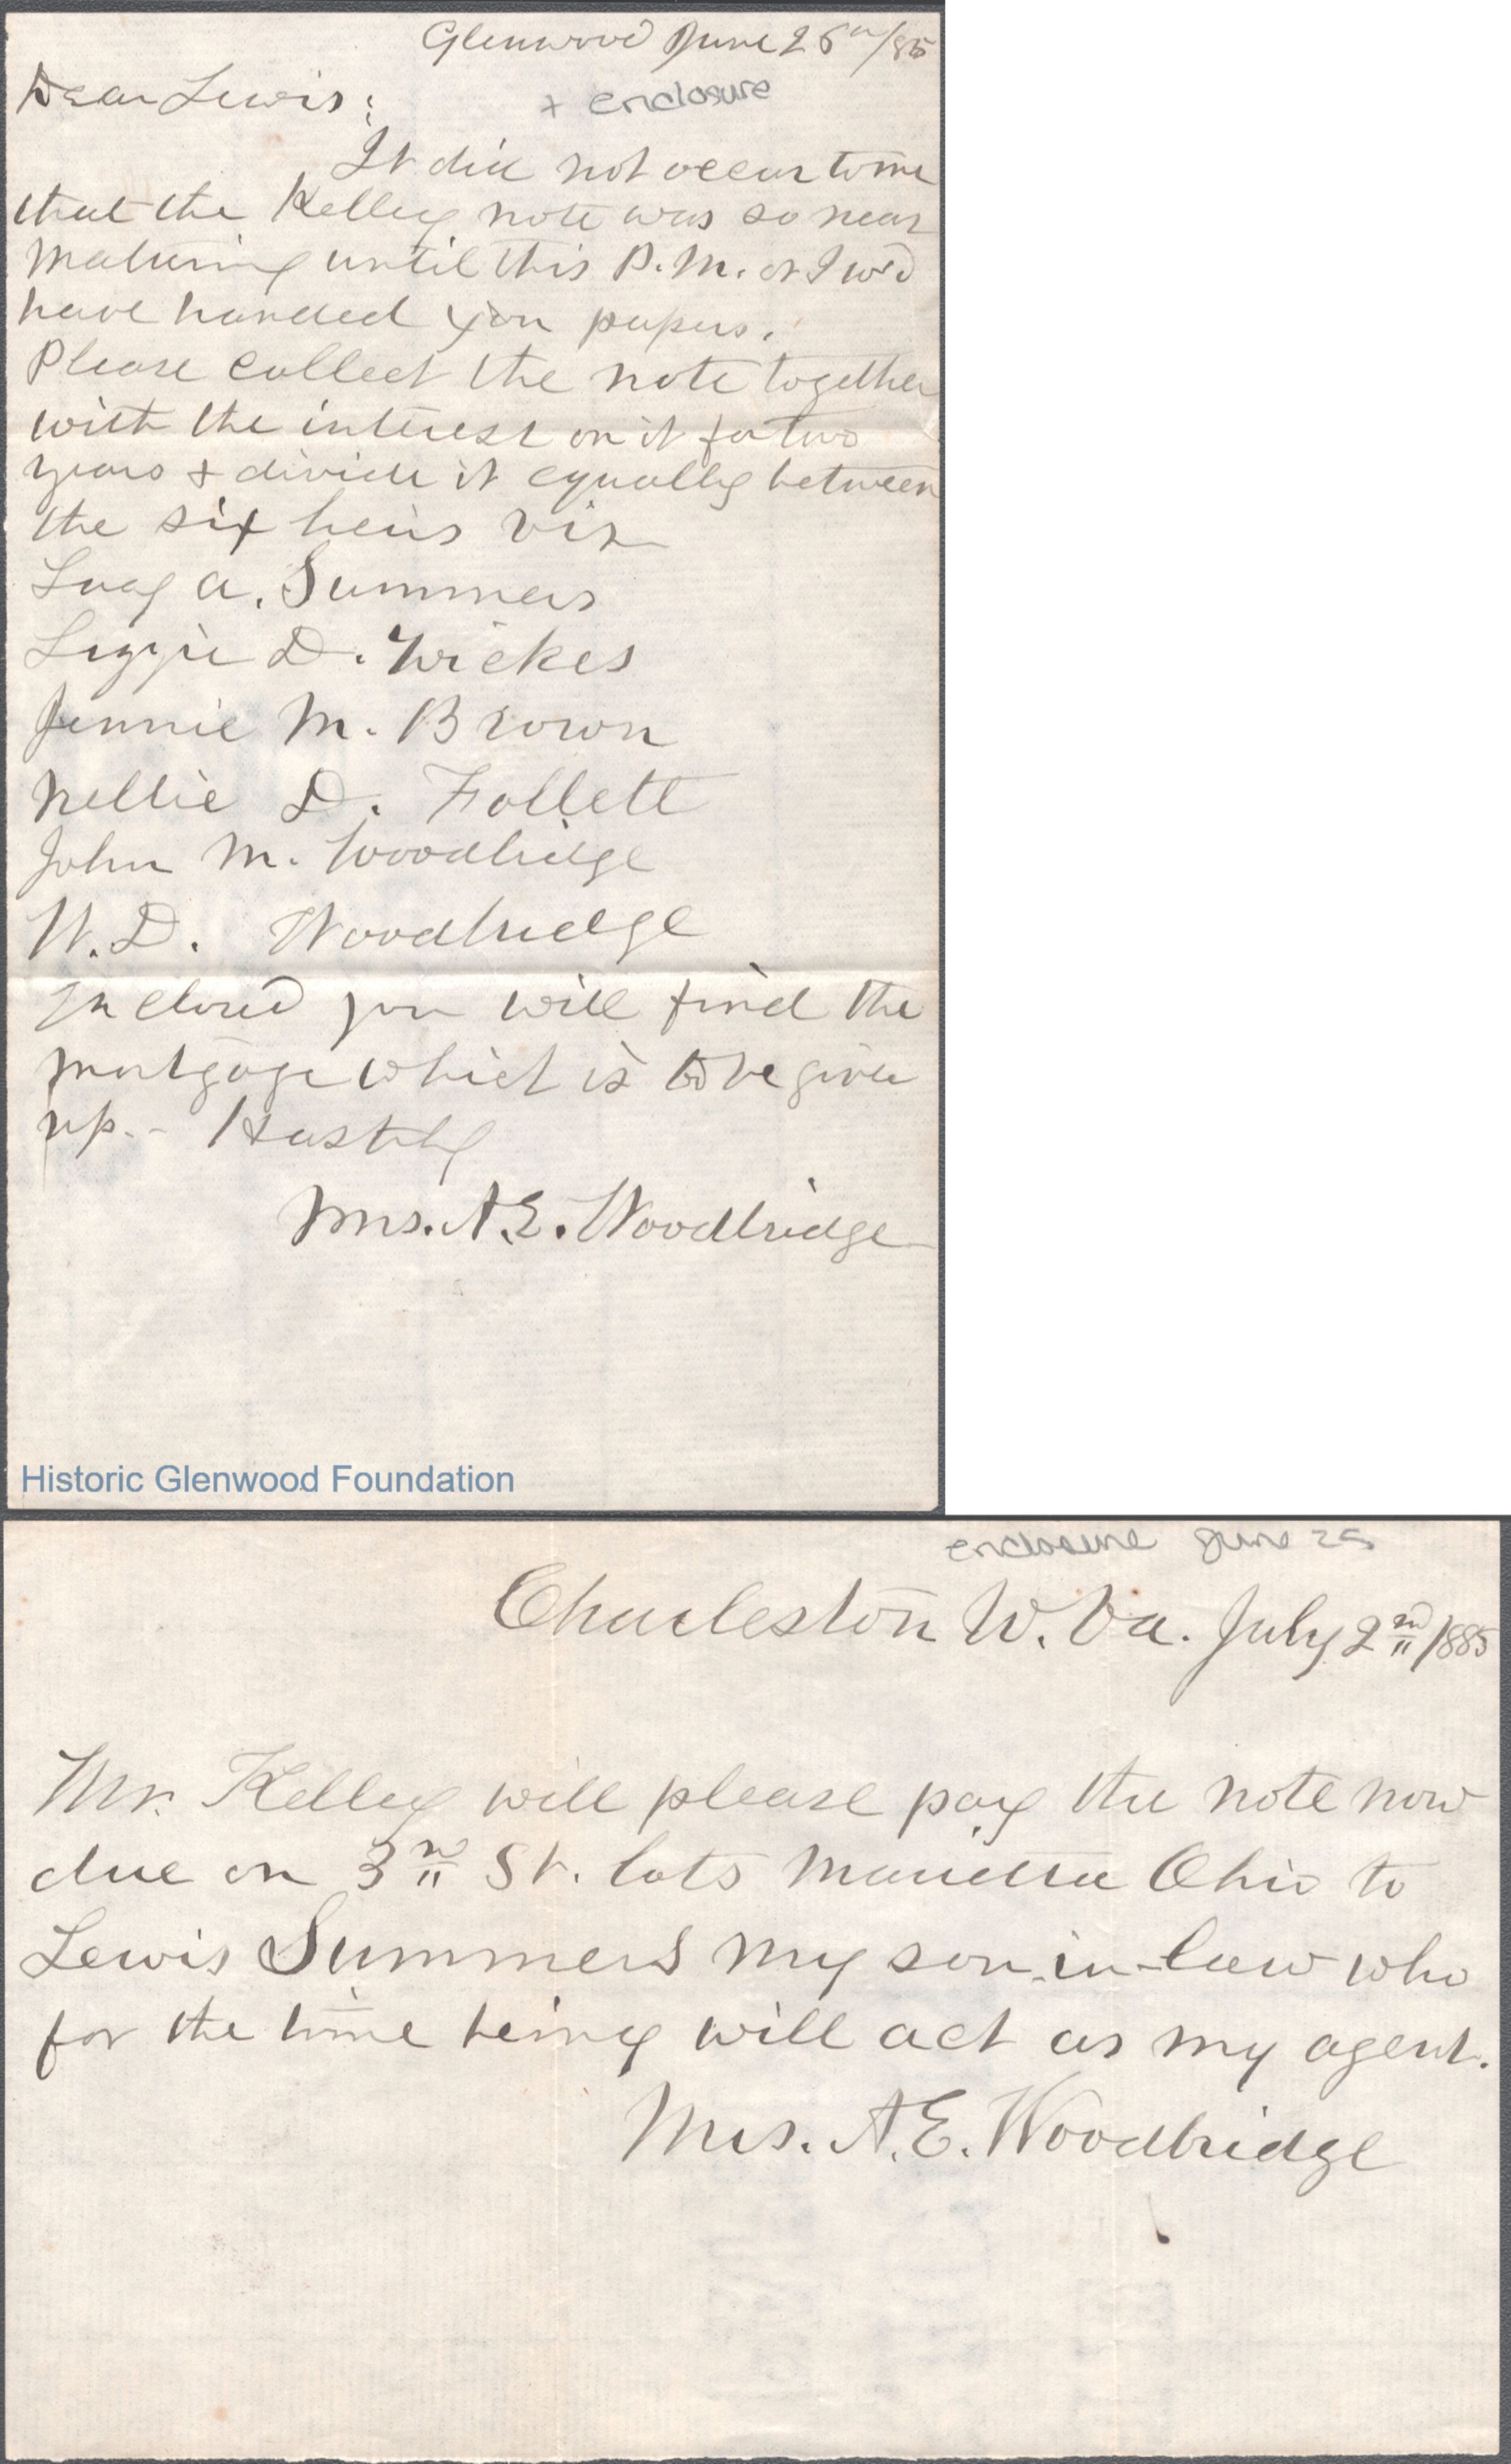 Glenwood June 25th/85
+ enclosure
Dear Lewis:
It did not occur to me
that the Kelley note was so near
maturing until this P.M. or I wd
have handed you papers.
Please collect the note together
with the interest on it for two
years & divide it equally between
the six heirs viz
Lucy A. Summers
Lizzie D. Wickes
Jennie M. Brown
Nellie D. Follett
John M. Woodbridge
W. D. Woodbridge
Inclosed you will find the
mortgage which is to be given
up. - Hastily
Mrs. A. E. Woodbridge
Historic Glenwood Foundation
enclosure June 25
Charleston W. Va. July 2nd/1885
Mr. Kelley will please pay the note now
due on 3rd St. lots Marietta Ohio to
Lewis Summers my son-in-law who
for the time being will act as my agent.
Mrs. A. E. Woodbridge